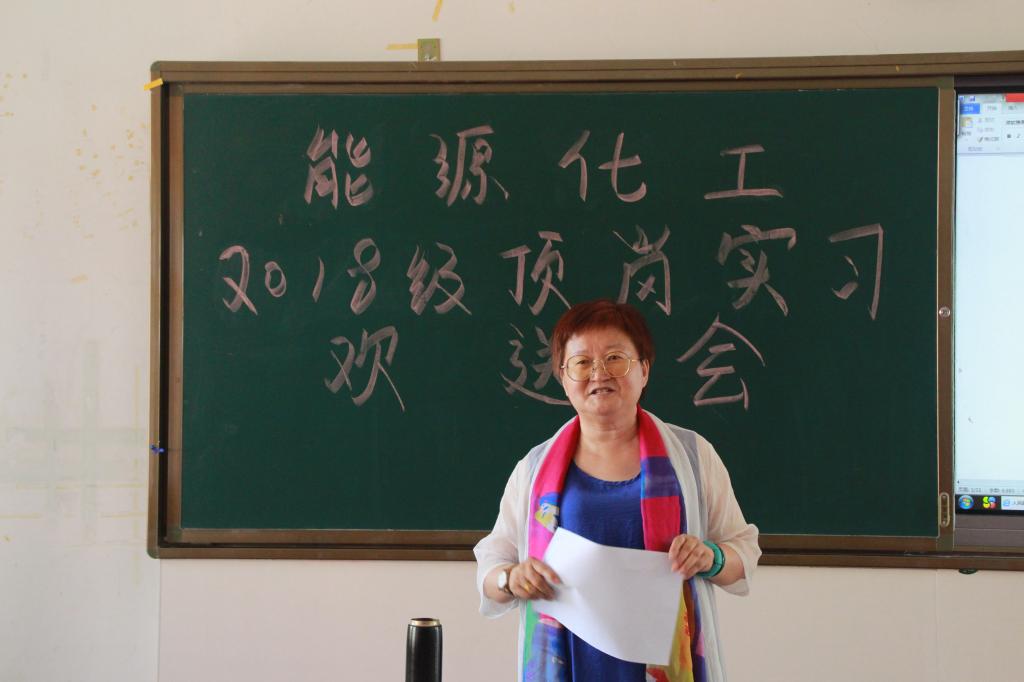 能源化工
2018级顶岗实习
欢送会